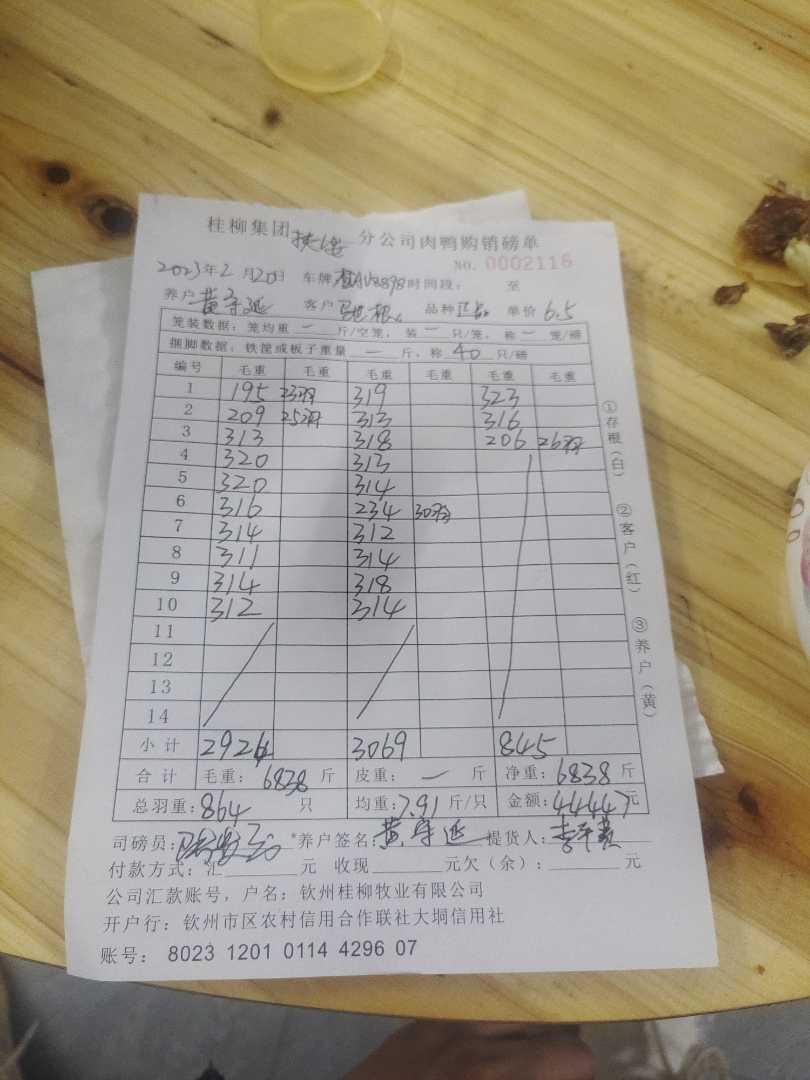 桂柳集团 分公司肉鸭购销磅单
NO. 0002116
2023年2月20日 车牌 时间段： 至
养户 黄守延 客户 品种 单价 6.5
笼装数据：笼均重 一 斤/空笼，装 一 只/笼，称 一 笼/磅
捆脚数据：铁筐或板子重量 一 斤，称 40 只/磅
编号 毛重 毛重 毛重 毛重 毛重 毛重
1 195 23羽 319 323
2 209 25羽 313 316
3 313 318 206 26羽
4 320 313
5 320 314
6 316 234 30羽
7 314 312
8 311 314
9 314 318
10 312 314
11
12
13
14
小计 2924 3069 845
合计 毛重：6838 斤 皮重：一 斤 净重：6838 斤
总羽重：864 只 均重：7.91 斤/只 金额：44447元
司磅员： 养户签名：黄守延 提货人：
付款方式：汇 元 收现 元欠（余）： 元
公司汇款账号，户名：钦州桂柳牧业有限公司
开户行：钦州市区农村信用合作联社大垌信用社
账号： 8023 1201 0114 4296 07
①存根（白） ②客户（红） ③养户（黄）